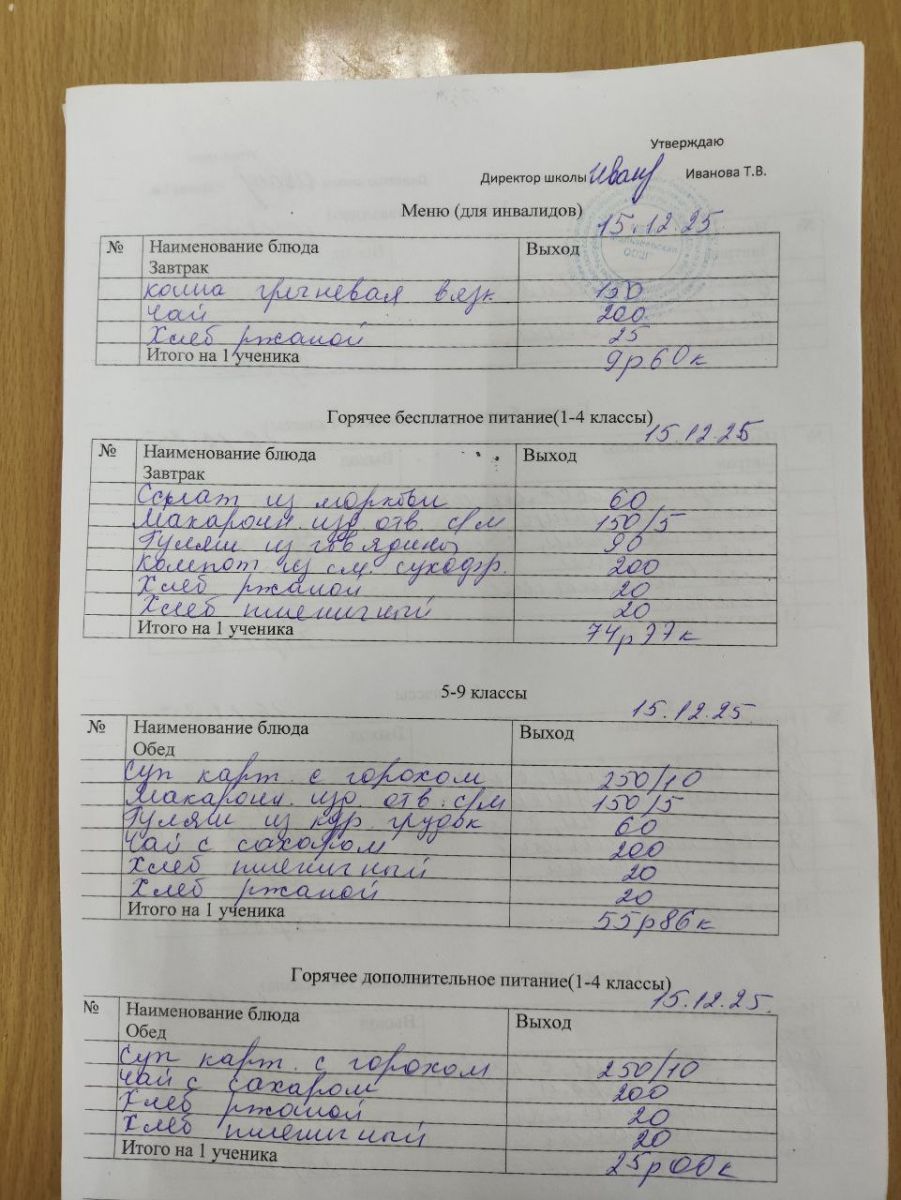 Утверждаю
Директор школы Иванова Т.В.
Меню (для инвалидов)
15.12.25.
№ Наименование блюда Выход
Завтрак
каша гречневая вязк 150
Чай 200
Хлеб ржаной 25
Итого на 1 ученика 9р60к
Горячее бесплатное питание(1-4 классы)
15.12.25
№ Наименование блюда Выход
Завтрак
Салат из моркови 60
Макарон. изд отв. с/м 150/5
Гуляш из говядины 90
Компот из см. сухофр. 200
Хлеб ржаной 20
Хлеб пшеничный 20
Итого на 1 ученика 74р77к
5-9 классы
15.12.25.
№ Наименование блюда Выход
Обед
Суп карт. с горохом 250/10
Макарон. изд. отв. с/м 150/5
Гуляш из кур грудок 60
Чай с сахаром 200
Хлеб пшеничный 20
Хлеб ржаной 20
Итого на 1 ученика 55р86к
Горячее дополнительное питание(1-4 классы)
15.12.25.
№ Наименование блюда Выход
Обед
Суп карт. с горохом 250/10
Чай с сахаром 200
Хлеб ржаной 20
Хлеб пшеничный 20
Итого на 1 ученика 25р00к